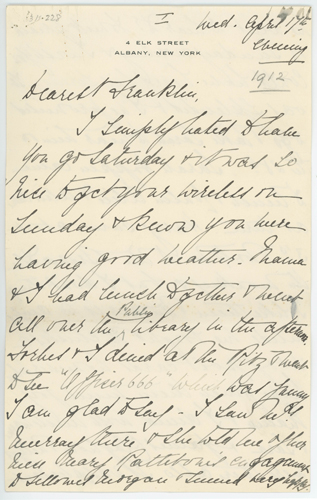 I
Wed. April 17th
evening
4 ELK STREET
ALBANY, NEW YORK
1912
Dearest Franklin,
I simply hated to have
you go Saturday & it was so
nice to get your wireless on
Sunday & know you were
having good weather. Mama
& I had lunch together & went
all over the Public library in the afternoon
Forbes & I dined at the Ritz & went
to the "Officer 666" which was funny
I am glad to say - I saw
there & she told me of her
niece Mary Rathbone's engagement
& seemed very happy.